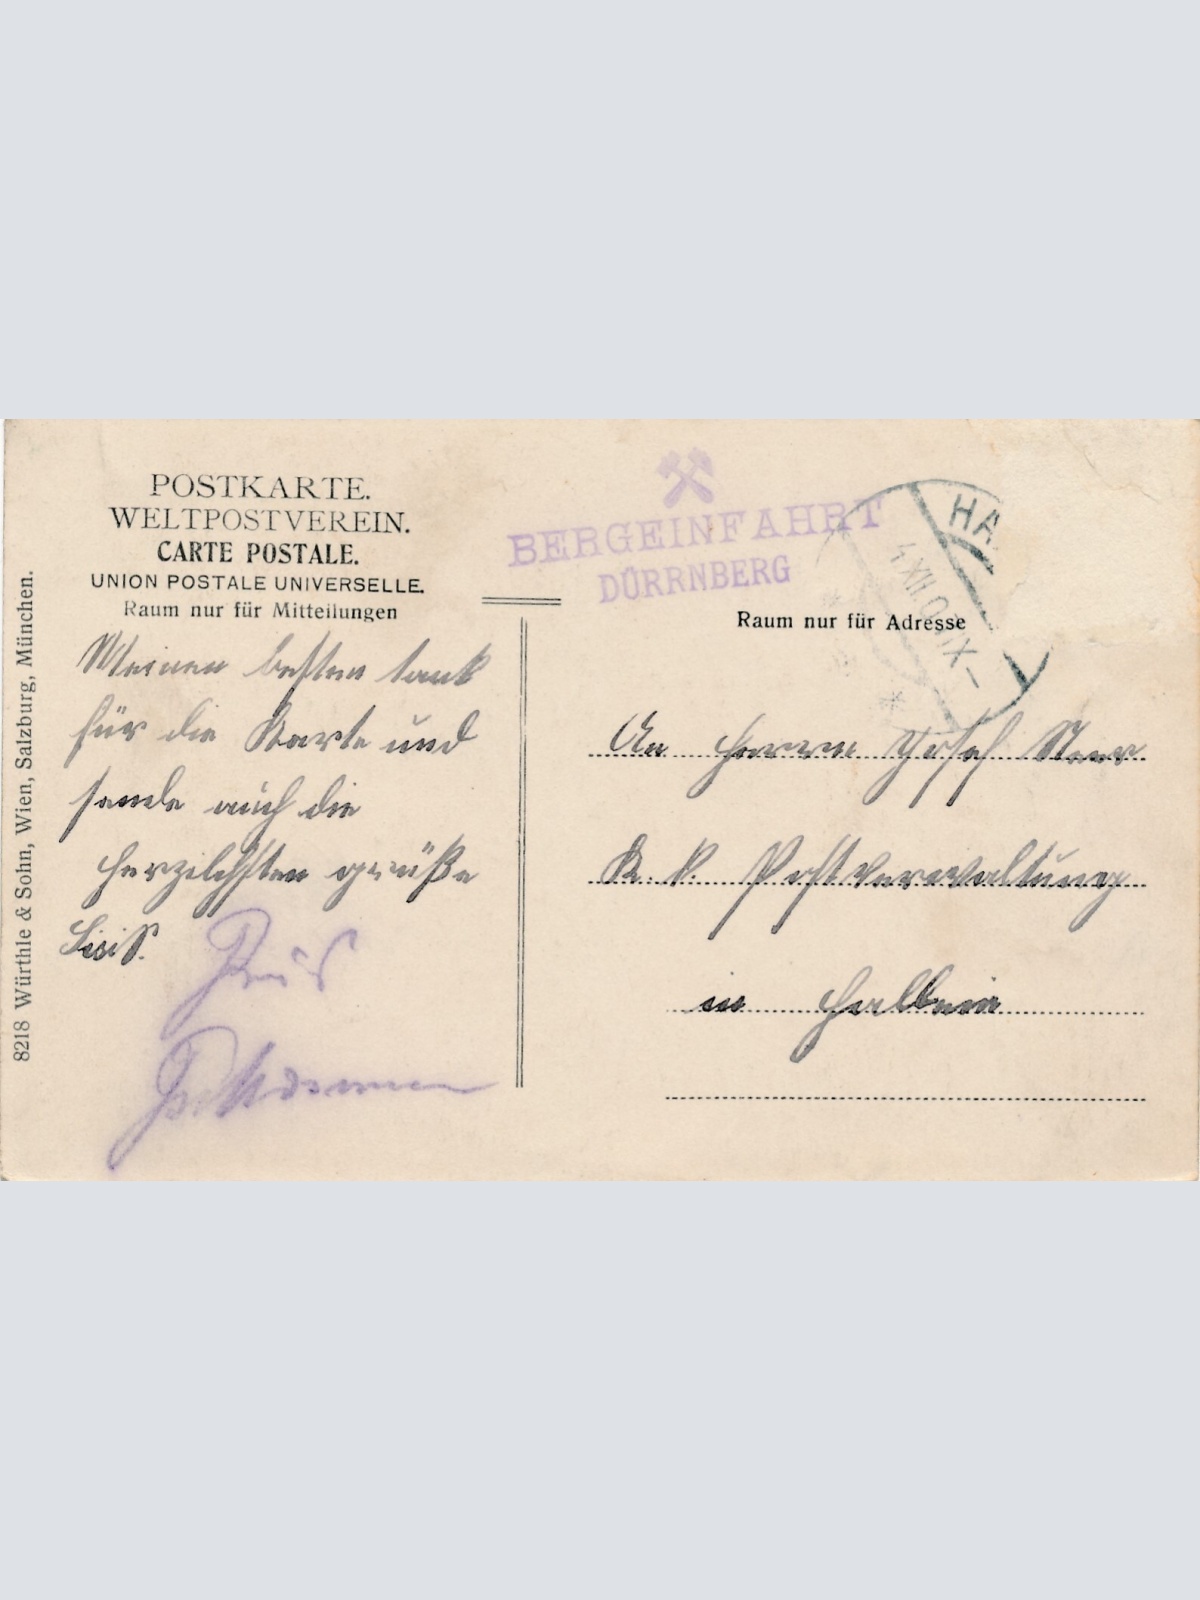 POSTKARTE.
WELTPOSTVEREIN.
CARTE POSTALE.
UNION POSTALE UNIVERSELLE.
Raum nur für Mitteilungen
Meinen besten tank
für die Karte und
sende auch die
herzilchsten grüße
8218 Würthle & Sohn, Wien, Salzburg, München.
BERGEINFAHRT
DÜRRNBERG
HA
XII
IX-
Raum nur für Adresse
An Herrn Josef
K. K. Postverwaltung
in Hallein